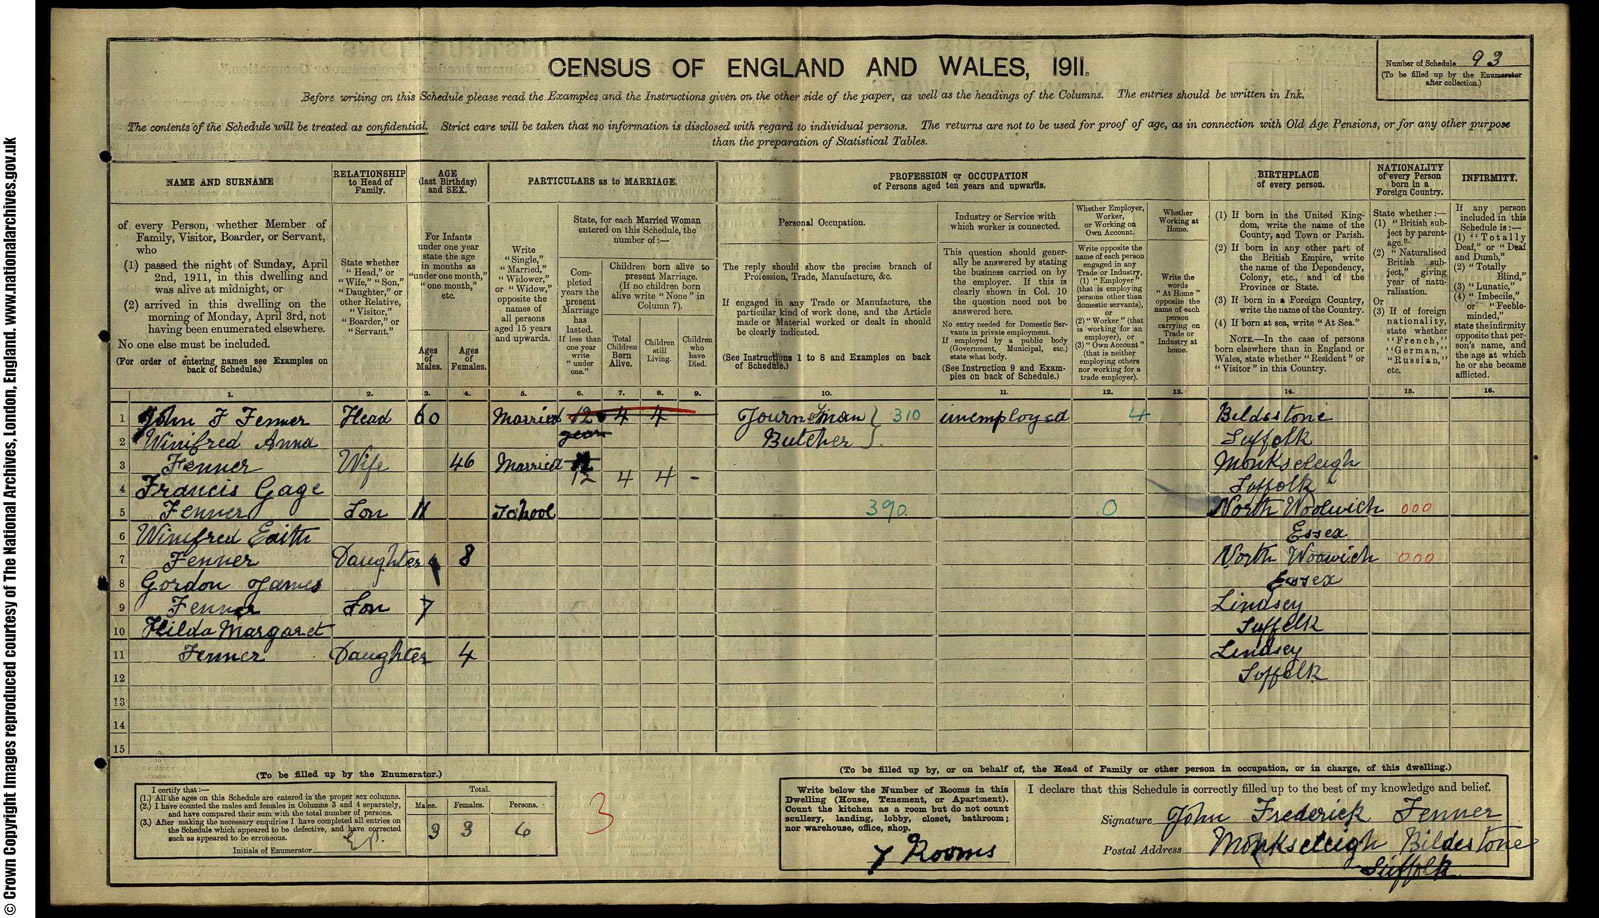 CENSUS OF ENGLAND AND WALES, 1911.
Number of Schedule 93
(To be filled up by the Enumerator after collection.)
Before writing on this Schedule please read the Examples and the Instructions given on the other side of the paper, as well as the headings of the Columns. The entries should be written in Ink.
The contents of the Schedule will be treated as confidential. Strict care will be taken that no information is disclosed with regard to individual persons. The returns are not to be used for proof of age, as in connection with Old Age Pensions, or for any other purpose
than the preparation of Statistical Tables.
NAME AND SURNAME
of every Person, whether Member of
Family, Visitor, Boarder, or Servant,
who
(1) passed the night of Sunday, April
2nd, 1911, in this dwelling and
was alive at midnight, or
(2) arrived in this dwelling on the
morning of Monday, April 3rd, not
having been enumerated elsewhere.
No one else must be included.
(For order of entering names see Examples on
back of Schedule.)
RELATIONSHIP
to Head of
Family.
State whether
"Head," or
"Wife," "Son,"
"Daughter," or
other Relative,
"Visitor,"
"Boarder," or
"Servant."
AGE
(last Birthday)
and SEX.
For Infants
under one year
state the age
in months as
"under one month,"
"one month,"
etc.
Ages
of
Males.
Ages
of
Females.
PARTICULARS as to MARRIAGE.
Write
"Single,"
"Married,"
"Widower,"
or "Widow,"
opposite the
names of
all persons
aged 15 years
and upwards.
State, for each Married Woman
entered on this Schedule, the
number of:—
Completed
years the
present
Marriage
has
lasted.
If less than
one year
write
"under
one."
Children born alive to
present Marriage.
(If no children born
alive write "None" in
Column 7).
Total
Children
Born
Alive.
Children
still
Living.
Children
who
have
Died.
PROFESSION or OCCUPATION
of Persons aged ten years and upwards.
Personal Occupation.
The reply should show the precise branch of
Profession, Trade, Manufacture, &c.
If engaged in any Trade or Manufacture, the
particular kind of work done, and the Article
made or Material worked or dealt in should
be clearly indicated.
(See Instructions 1 to 8 and Examples on back
of Schedule.)
Industry or Service with
which worker is connected.
This question should generally
be answered by stating
the business carried on by
the employer. If this is
clearly shown in Col. 10
the question need not be
answered here.
No entry needed for Domestic Servants
in private employment.
If employed by a public body
(Government, Municipal, etc.)
state what body.
(See Instruction 9 and Examples
on back of Schedule.)
Whether Employer,
Worker,
or Working on
Own Account.
Write opposite the
name of each person
engaged in any
Trade or Industry,
(1) "Employer"
(that is employing
persons other than
domestic servants),
or
(2) "Worker" (that
is working for an
employer), or
(3) "Own Account"
(that is neither
employing others
nor working for a
trade employer).
Whether
Working at
Home.
Write the
words
"At Home"
opposite the
name of each
person
carrying on
Trade or
Industry at
home.
BIRTHPLACE
of every person.
(1) If born in the United Kingdom,
write the name of the
County, and Town or Parish.
(2) If born in any other part of
the British Empire, write
the name of the Dependency,
Colony, etc., and of the
Province or State.
(3) If born in a Foreign Country,
write the name of the Country.
(4) If born at sea, write "At Sea."
NOTE.—In the case of persons
born elsewhere than in England or
Wales, state whether "Resident" or
"Visitor" in this Country.
NATIONALITY
of every Person
born in a
Foreign Country.
State whether:—
(1) "British subject
by parentage."
(2) "Naturalised
British
subject," giving
year of naturalisation.
Or
(3) If of foreign
nationality,
state whether
"French,"
"German,"
"Russian,"
etc.
INFIRMITY.
If any person
included in this
Schedule is:—
(1) "Totally
Deaf," or "Deaf
and Dumb,"
(2) "Totally
Blind,"
(3) "Lunatic,"
(4) "Imbecile,"
or "Feeble-minded,"
state the infirmity
opposite that person's
name, and
the age at which
he or she became
afflicted.
1. 2. 3. 4. 5. 6. 7. 8. 9. 10. 11. 12. 13. 14. 15. 16.
1 John F Fenner Head 60 Married 12 4 4 Journeyman 310 unemployed 4 Bildestone
2 Winifred Anna years Butcher Suffolk
3 Fenner Wife 46 Married Monkseleigh
4 Francis Gage 12 4 4 - Suffolk
5 Fenner Son 11 School 390 0 North Woolwich 000
6 Winifred Edith Essex
7 Fenner Daughter 8 North Woowich 000
8 Gordon James Essex
9 Fenner Son 7 Lindsey
10 Hilda Margaret Suffolk
11 Fenner Daughter 4 Lindsey
12 Suffolk
13
14
15
(To be filled up by the Enumerator.)
I certify that:—
(1.) All the ages on this Schedule are entered in the proper sex columns.
(2.) I have counted the males and females in Columns 3 and 4 separately,
and have compared their sum with the total number of persons.
(3.) After making the necessary enquiries I have completed all entries on
the Schedule which appeared to be defective, and have corrected
such as appeared to be erroneous.
Initials of Enumerator
Total.
Males. Females. Persons.
3 3 6
3
(To be filled up by, or on behalf of, the Head of Family or other person in occupation, or in charge, of this dwelling.)
Write below the Number of Rooms in this
Dwelling (House, Tenement, or Apartment).
Count the kitchen as a room but do not count
scullery, landing, lobby, closet, bathroom;
nor warehouse, office, shop.
7 Rooms
I declare that this Schedule is correctly filled up to the best of my knowledge and belief.
Signature John Frederick Fenner
Postal Address Monkseleigh Bildestone
Suffolk
© Crown Copyright Images reproduced courtesy of The National Archives, London, England. www.nationalarchives.gov.uk